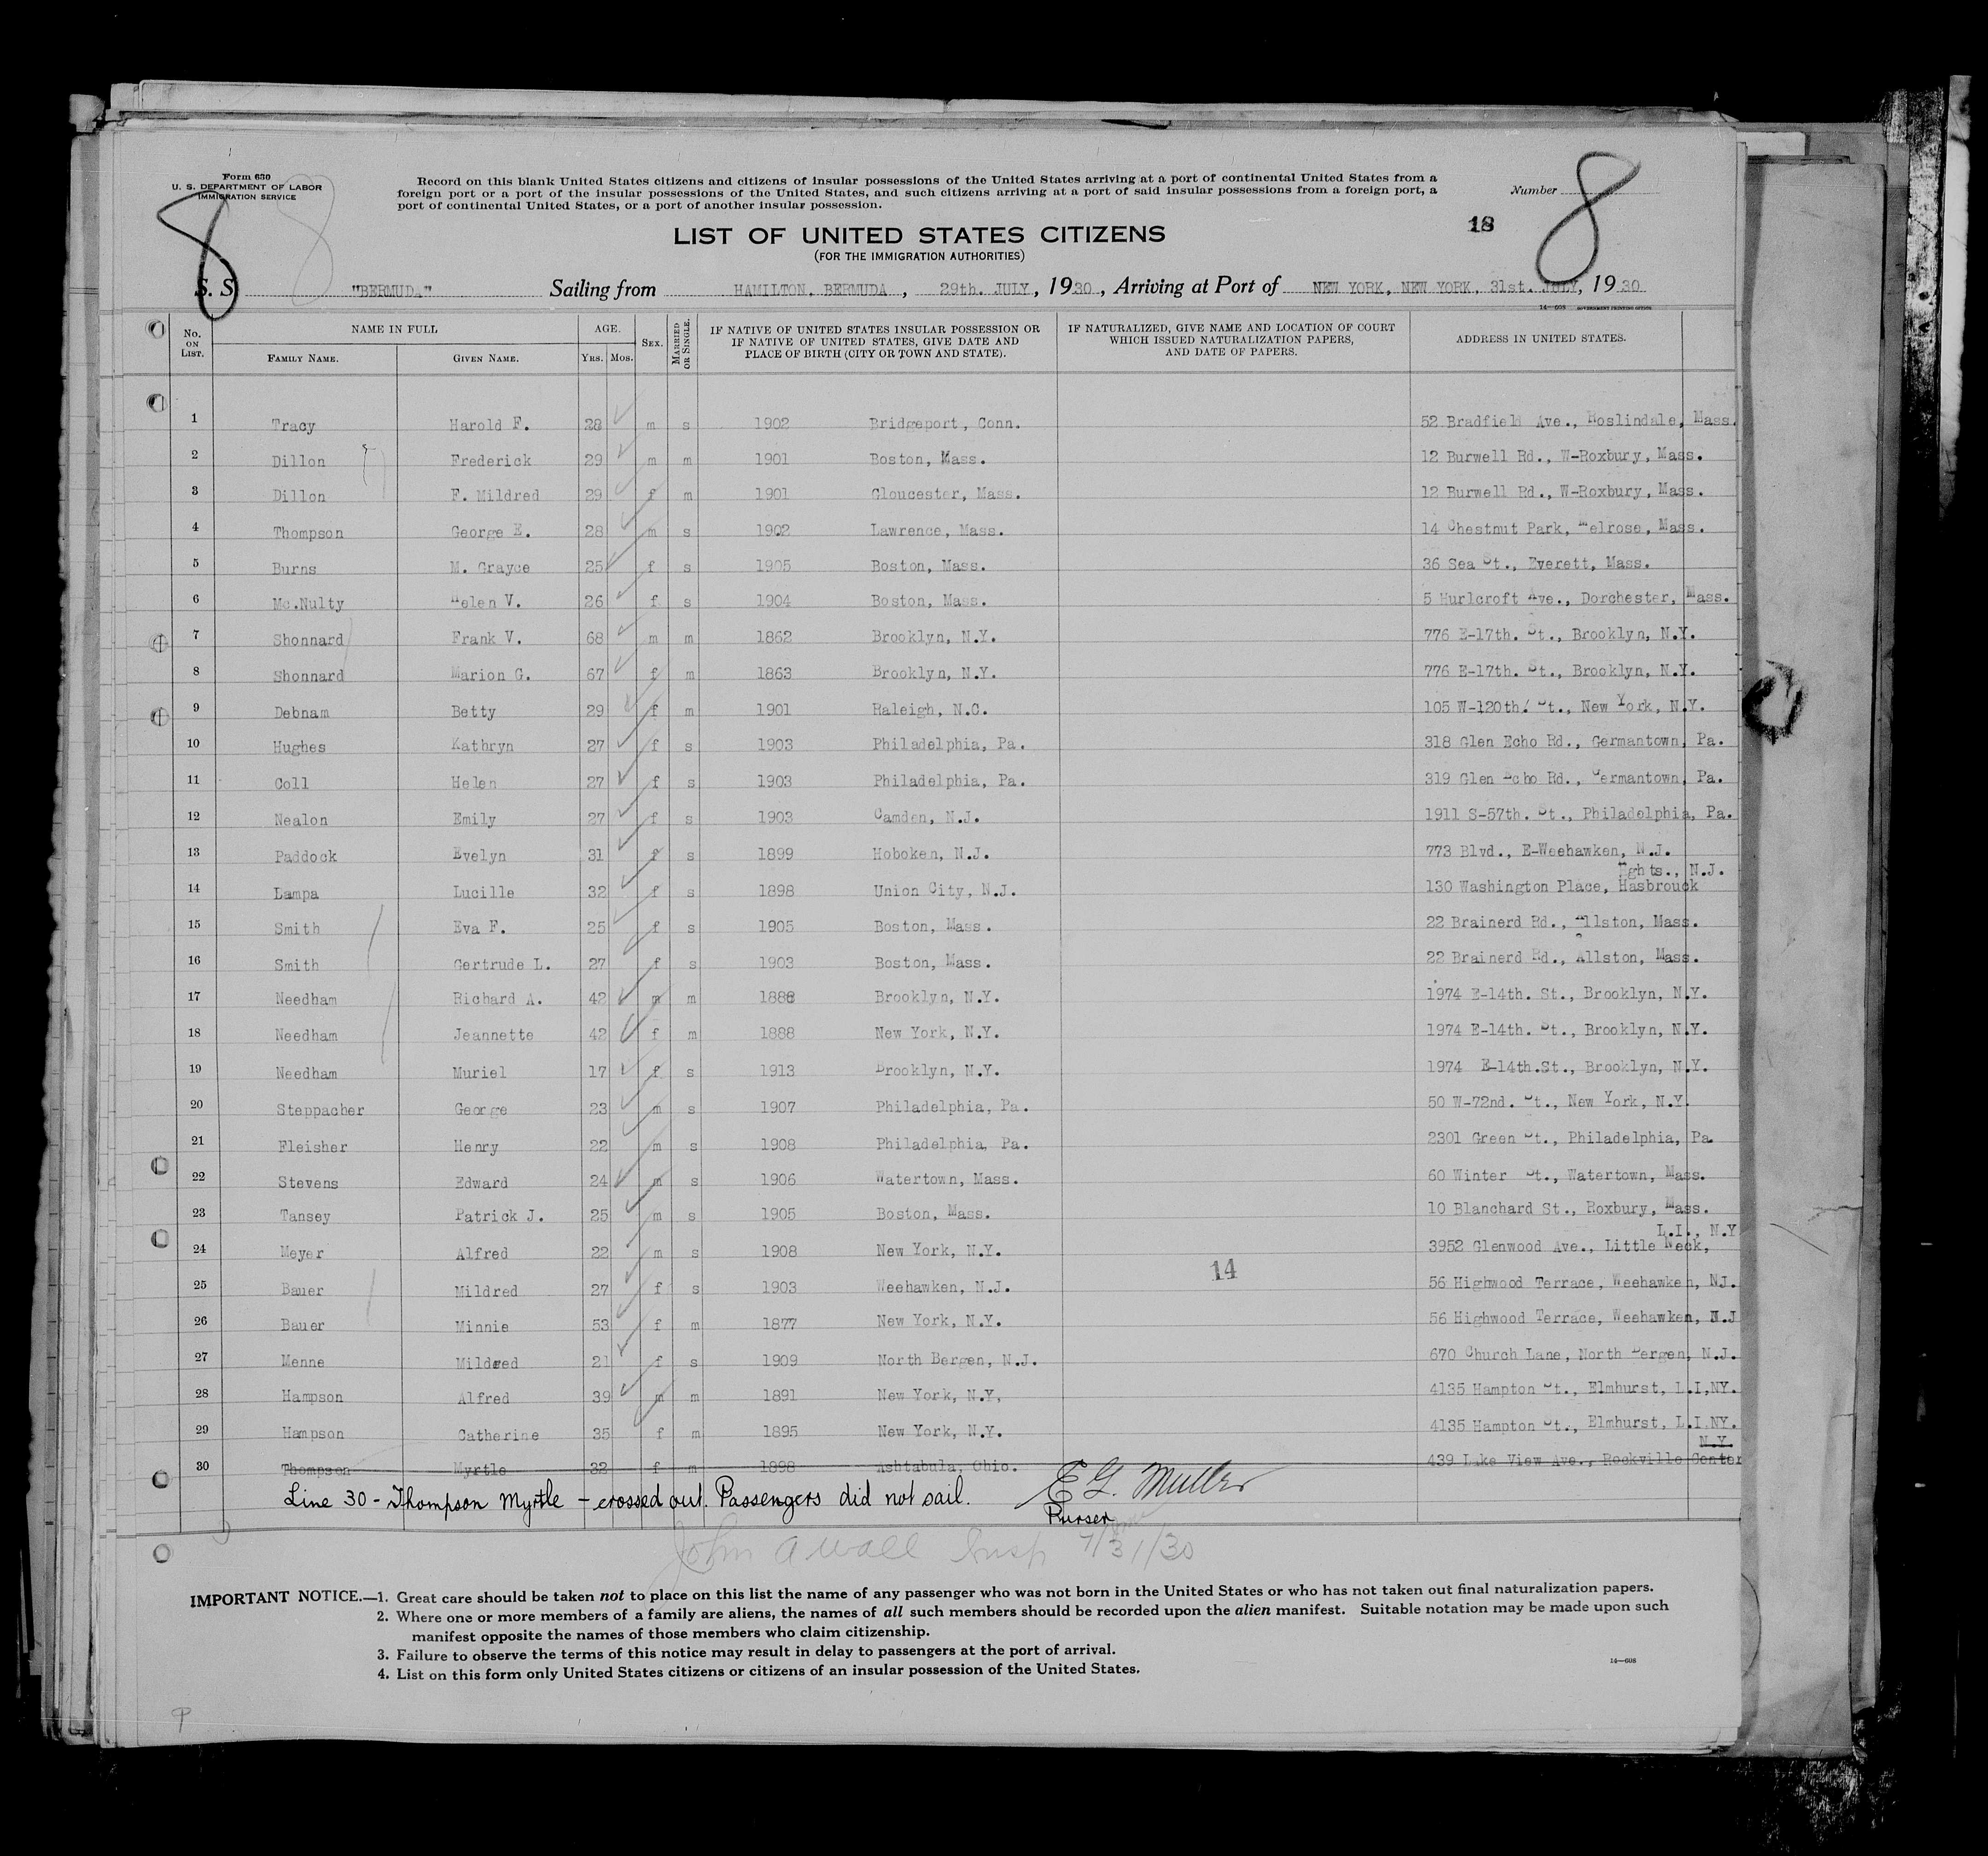 Form 630
U. S. DEPARTMENT OF LABOR
IMMIGRATION SERVICE
Record on this blank United States citizens and citizens of insular possessions of the United States arriving at a port of continental United States from a
foreign port or a port of the insular possessions of the United States, and such citizens arriving at a port of said insular possessions from a foreign port, a
port of continental United States, or a port of another insular possession.
Number
8
8
8
18
LIST OF UNITED STATES CITIZENS
(FOR THE IMMIGRATION AUTHORITIES)
S. S. "BERMUDA" Sailing from HAMILTON. BERMUDA , 29th. JULY, 1930, Arriving at Port of NEW YORK, NEW YORK, 31st. JULY, 1930
14—608 GOVERNMENT PRINTING OFFICE
No. ON LIST. NAME IN FULL FAMILY NAME. GIVEN NAME. AGE. YRS. MOS. SEX. MARRIED OR SINGLE. IF NATIVE OF UNITED STATES INSULAR POSSESSION OR IF NATIVE OF UNITED STATES, GIVE DATE AND PLACE OF BIRTH (CITY OR TOWN AND STATE). IF NATURALIZED, GIVE NAME AND LOCATION OF COURT WHICH ISSUED NATURALIZATION PAPERS, AND DATE OF PAPERS. ADDRESS IN UNITED STATES.
1 Tracy Harold F. 28 m s 1902 Bridgeport, Conn. 52 Bradfield Ave., Roslindale, Mass.
2 Dillon Frederick 29 m m 1901 Boston, Mass. 12 Burwell Rd., W-Roxbury, Mass.
3 Dillon F. Mildred 29 f m 1901 Gloucester, Mass. 12 Burwell Rd., W-Roxbury, Mass.
4 Thompson George E. 28 m s 1902 Lawrence, Mass. 14 Chestnut Park, Melrose, Mass.
5 Burns M. Grayce 25 f s 1905 Boston, Mass. 36 Sea St., Everett, Mass.
6 Mc.Nulty Helen V. 26 f s 1904 Boston, Mass. 5 Hurlcroft Ave., Dorchester, Mass.
7 Shonnard Frank V. 68 m m 1862 Brooklyn, N.Y. 776 E-17th. St., Brooklyn, N.Y.
8 Shonnard Marion G. 67 f m 1863 Brooklyn, N.Y. 776 E-17th. St., Brooklyn, N.Y.
9 Debnam Betty 29 f m 1901 Raleigh, N.C. 105 W-120th. St., New York, N.Y.
10 Hughes Kathryn 27 f s 1903 Philadelphia, Pa. 318 Glen Echo Rd., Germantown, Pa.
11 Coll Helen 27 f s 1903 Philadelphia, Pa. 319 Glen Echo Rd., Germantown, Pa.
12 Nealon Emily 27 f s 1903 Camden, N.J. 1911 S-57th. St., Philadelphia, Pa.
13 Paddock Evelyn 31 f s 1899 Hoboken, N.J. 773 Blvd., E-Weehawken, N.J.
Hghts., N.J.
14 Lampa Lucille 32 f s 1898 Union City, N.J. 130 Washington Place, Hasbrouck
15 Smith Eva F. 25 f s 1905 Boston, Mass. 22 Brainerd Rd., Allston, Mass.
16 Smith Gertrude L. 27 f s 1903 Boston, Mass. 22 Brainerd Rd., Allston, Mass.
17 Needham Richard A. 42 m m 1888 Brooklyn, N.Y. 1974 E-14th. St., Brooklyn, N.Y.
18 Needham Jeannette 42 f m 1888 New York, N.Y. 1974 E-14th. St., Brooklyn, N.Y.
19 Needham Muriel 17 f s 1913 Brooklyn, N.Y. 1974 E-14th.St., Brooklyn, N.Y.
20 Steppacher George 23 m s 1907 Philadelphia, Pa. 50 W-72nd. St., New York, N.Y.
21 Fleisher Henry 22 m s 1908 Philadelphia, Pa. 2301 Green St., Philadelphia, Pa.
22 Stevens Edward 24 m s 1906 Watertown, Mass. 60 Winter St., Watertown, Mass.
23 Tansey Patrick J. 25 m s 1905 Boston, Mass. 10 Blanchard St., Roxbury, Mass.
L.I., N.Y
24 Meyer Alfred 22 m s 1908 New York, N.Y. 3952 Glenwood Ave., Little Neck,
14
25 Bauer Mildred 27 f s 1903 Weehawken, N.J. 56 Highwood Terrace, Weehawken, NJ.
26 Bauer Minnie 53 f m 1877 New York, N.Y. 56 Highwood Terrace, Weehawken, N.J
27 Menne Mildred 21 f s 1909 North Bergen, N.J. 670 Church Lane, North Bergen, N.J.
28 Hampson Alfred 39 m m 1891 New York, N.Y, 4135 Hampton St., Elmhurst, L.I,NY.
29 Hampson Catherine 35 f m 1895 New York, N.Y. 4135 Hampton St., Elmhurst, L.I.NY.
N.Y.
30 Thompson Myrtle 32 f m 1898 Ashtabula, Ohio. 439 Lake View Ave., Rockville Center
Line 30 - Thompson Myrtle - crossed out. Passengers did not sail. E G. Muller
Purser
John A Wall Insp 7/31/30
IMPORTANT NOTICE.—1. Great care should be taken not to place on this list the name of any passenger who was not born in the United States or who has not taken out final naturalization papers.
2. Where one or more members of a family are aliens, the names of all such members should be recorded upon the alien manifest. Suitable notation may be made upon such
manifest opposite the names of those members who claim citizenship.
3. Failure to observe the terms of this notice may result in delay to passengers at the port of arrival.
4. List on this form only United States citizens or citizens of an insular possession of the United States.
14—608